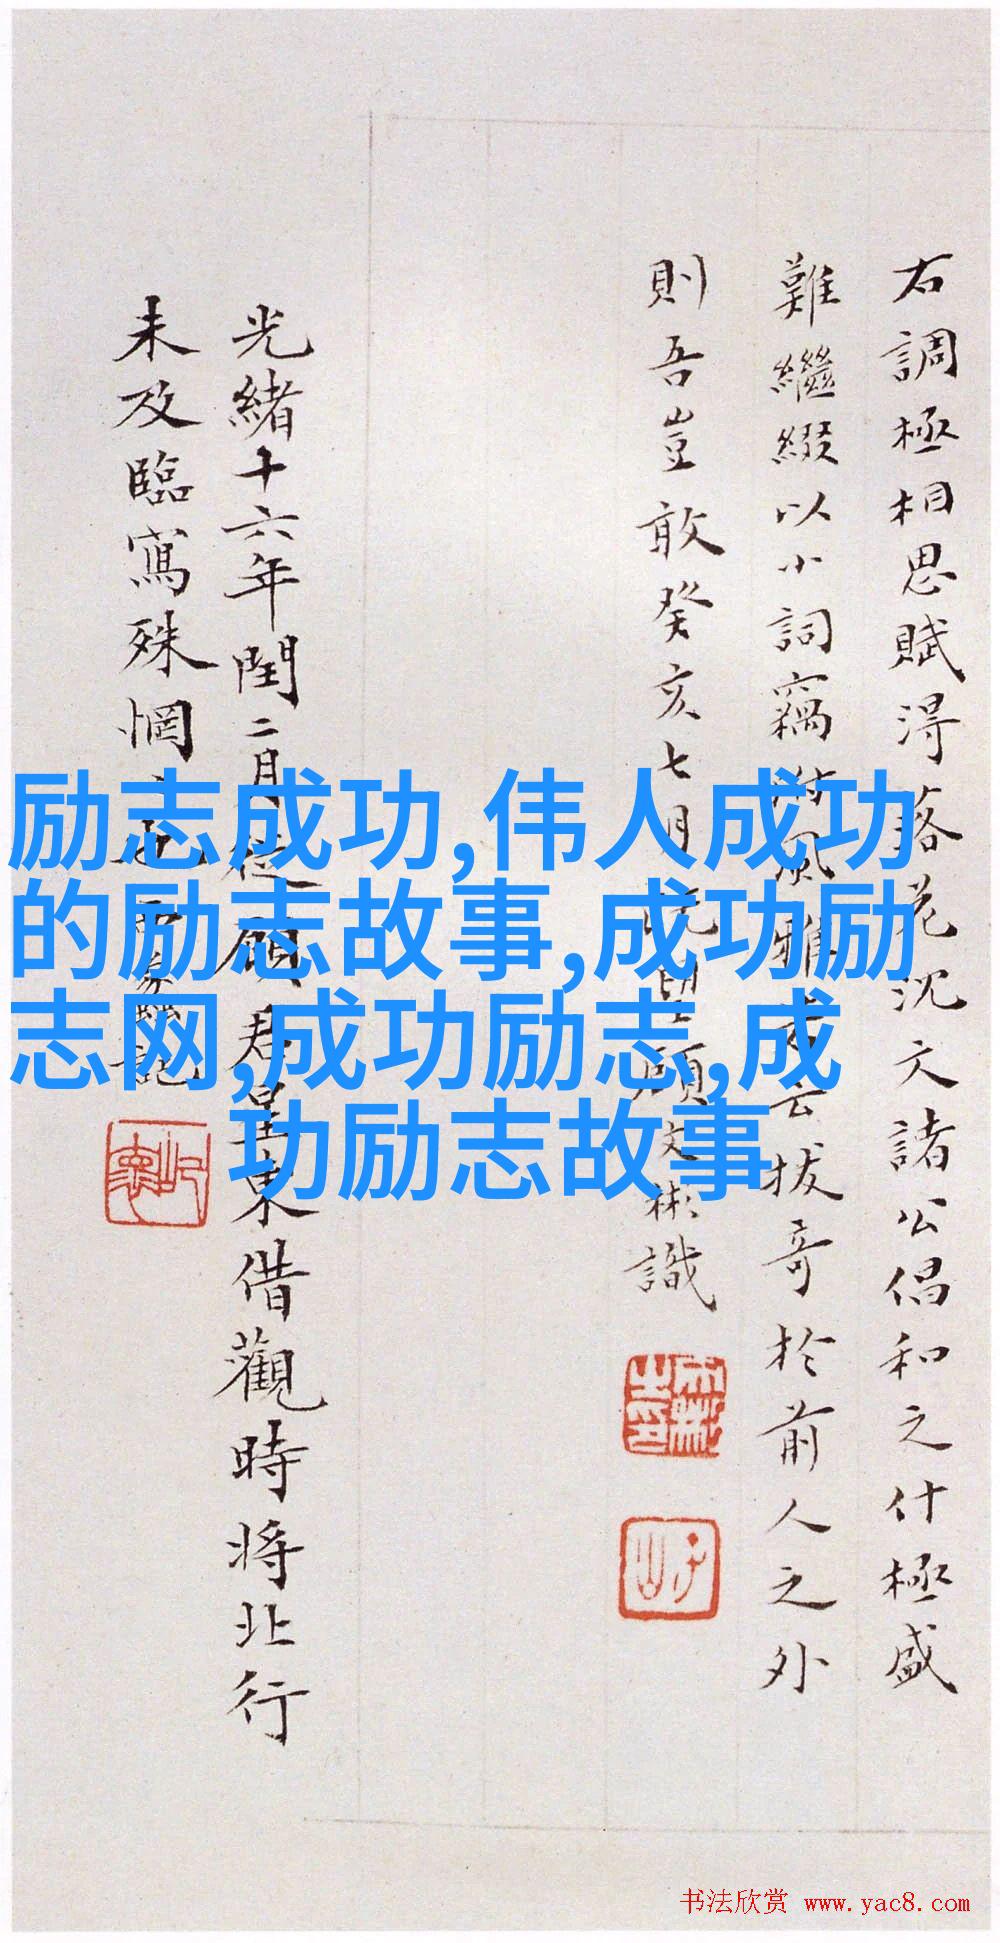 右調極相思賦得落花沈文諸公倡和之什極盛
難繼綴以小詞竊附風雅若云拔奇於前人之外
則吾豈敢癸亥七月既望顧文彬識
光緒十六年閏二月從顧君星東借觀時將北行
未及臨寫殊惘也記
励志成功,伟人成功
的励志故事,成功励
志网,成功励志,成
功励志故事
书法欣赏 www.yac8.com